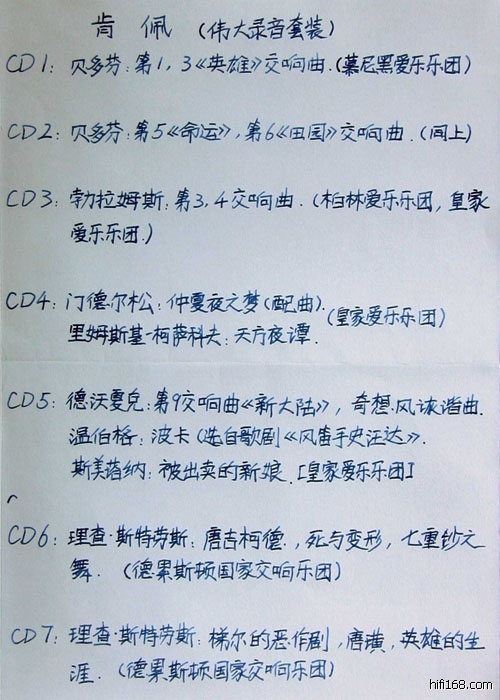 肯 佩 (伟大录音套装)
CD1: 贝多芬:第1,3《英雄》交响曲.(慕尼黑爱乐乐团)
CD2: 贝多芬:第5《命运》,第6《田园》交响曲.(同上)
CD3: 勃拉姆斯:第3,4交响曲.(柏林爱乐乐团,皇家
爱乐乐团.)
CD4: 门德尔松:仲夏夜之梦(配曲).(皇家爱乐乐团)
里姆斯基-柯萨科夫:天方夜谭.
CD5: 德沃夏克:第9交响曲《新大陆》,奇想·风诙谐曲.
温伯格:波卡(选自歌剧《风笛手史汪达》.
斯美塔纳:被出卖的新娘.[皇家爱乐乐团]
CD6: 理查·斯特劳斯:唐吉柯德.,死与变形,七重钞之
舞.(德累斯顿国家交响乐团)
CD7: 理查·斯特劳斯:梯尔的恶作剧,唐璜,英雄的生
涯.(德累斯顿国家交响乐团)
hifi168.com